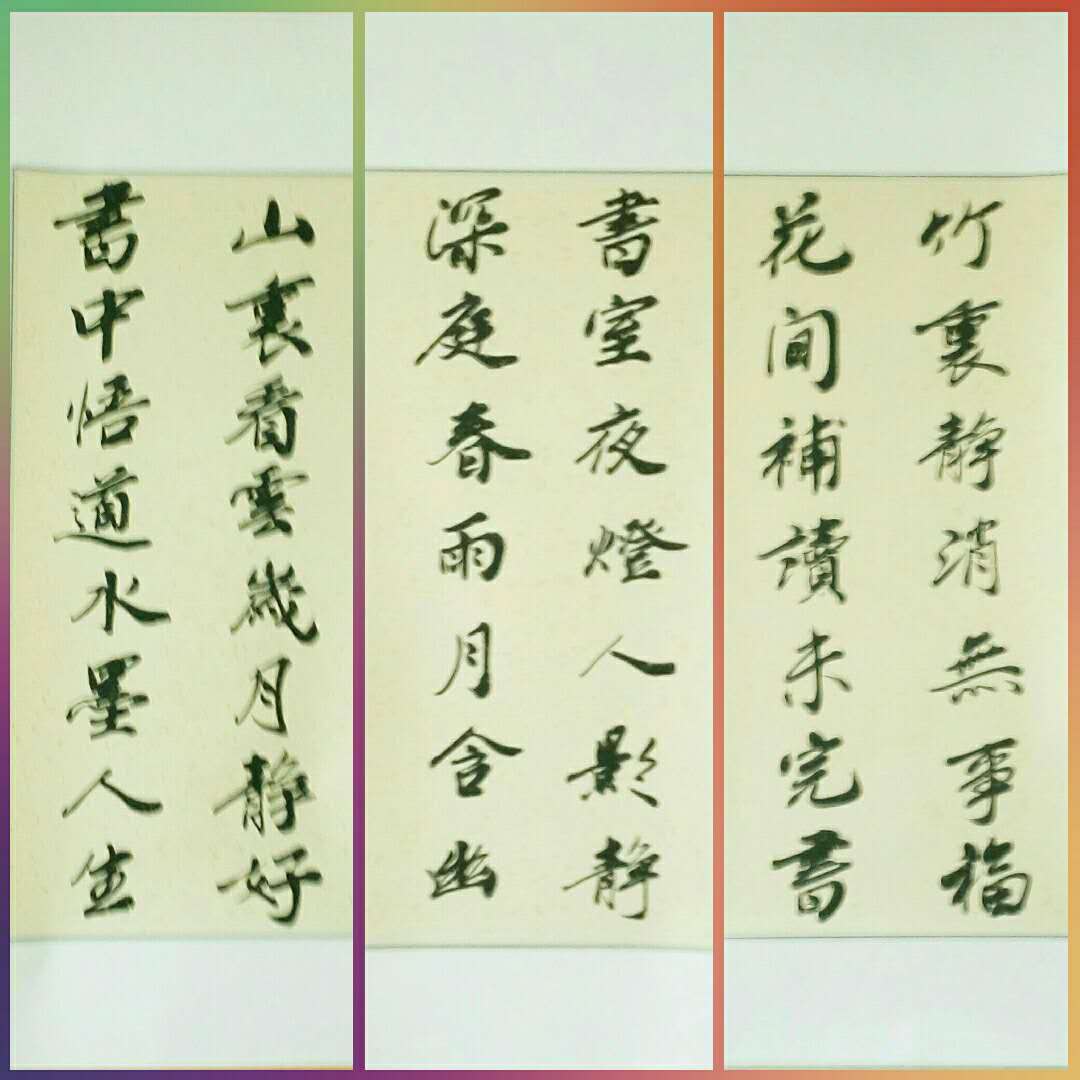 山裏看雲歲月靜好
書中悟道水墨人生
書室夜燈人影靜
深庭春雨月含幽
竹裏静消無事福
花间補讀未完書